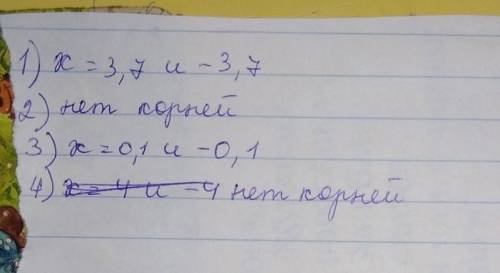 1) x = 3,7 и -3,7
2) нет корней
3) x = 0,1 и -0,1
4) x = 4 и -4 нет корней